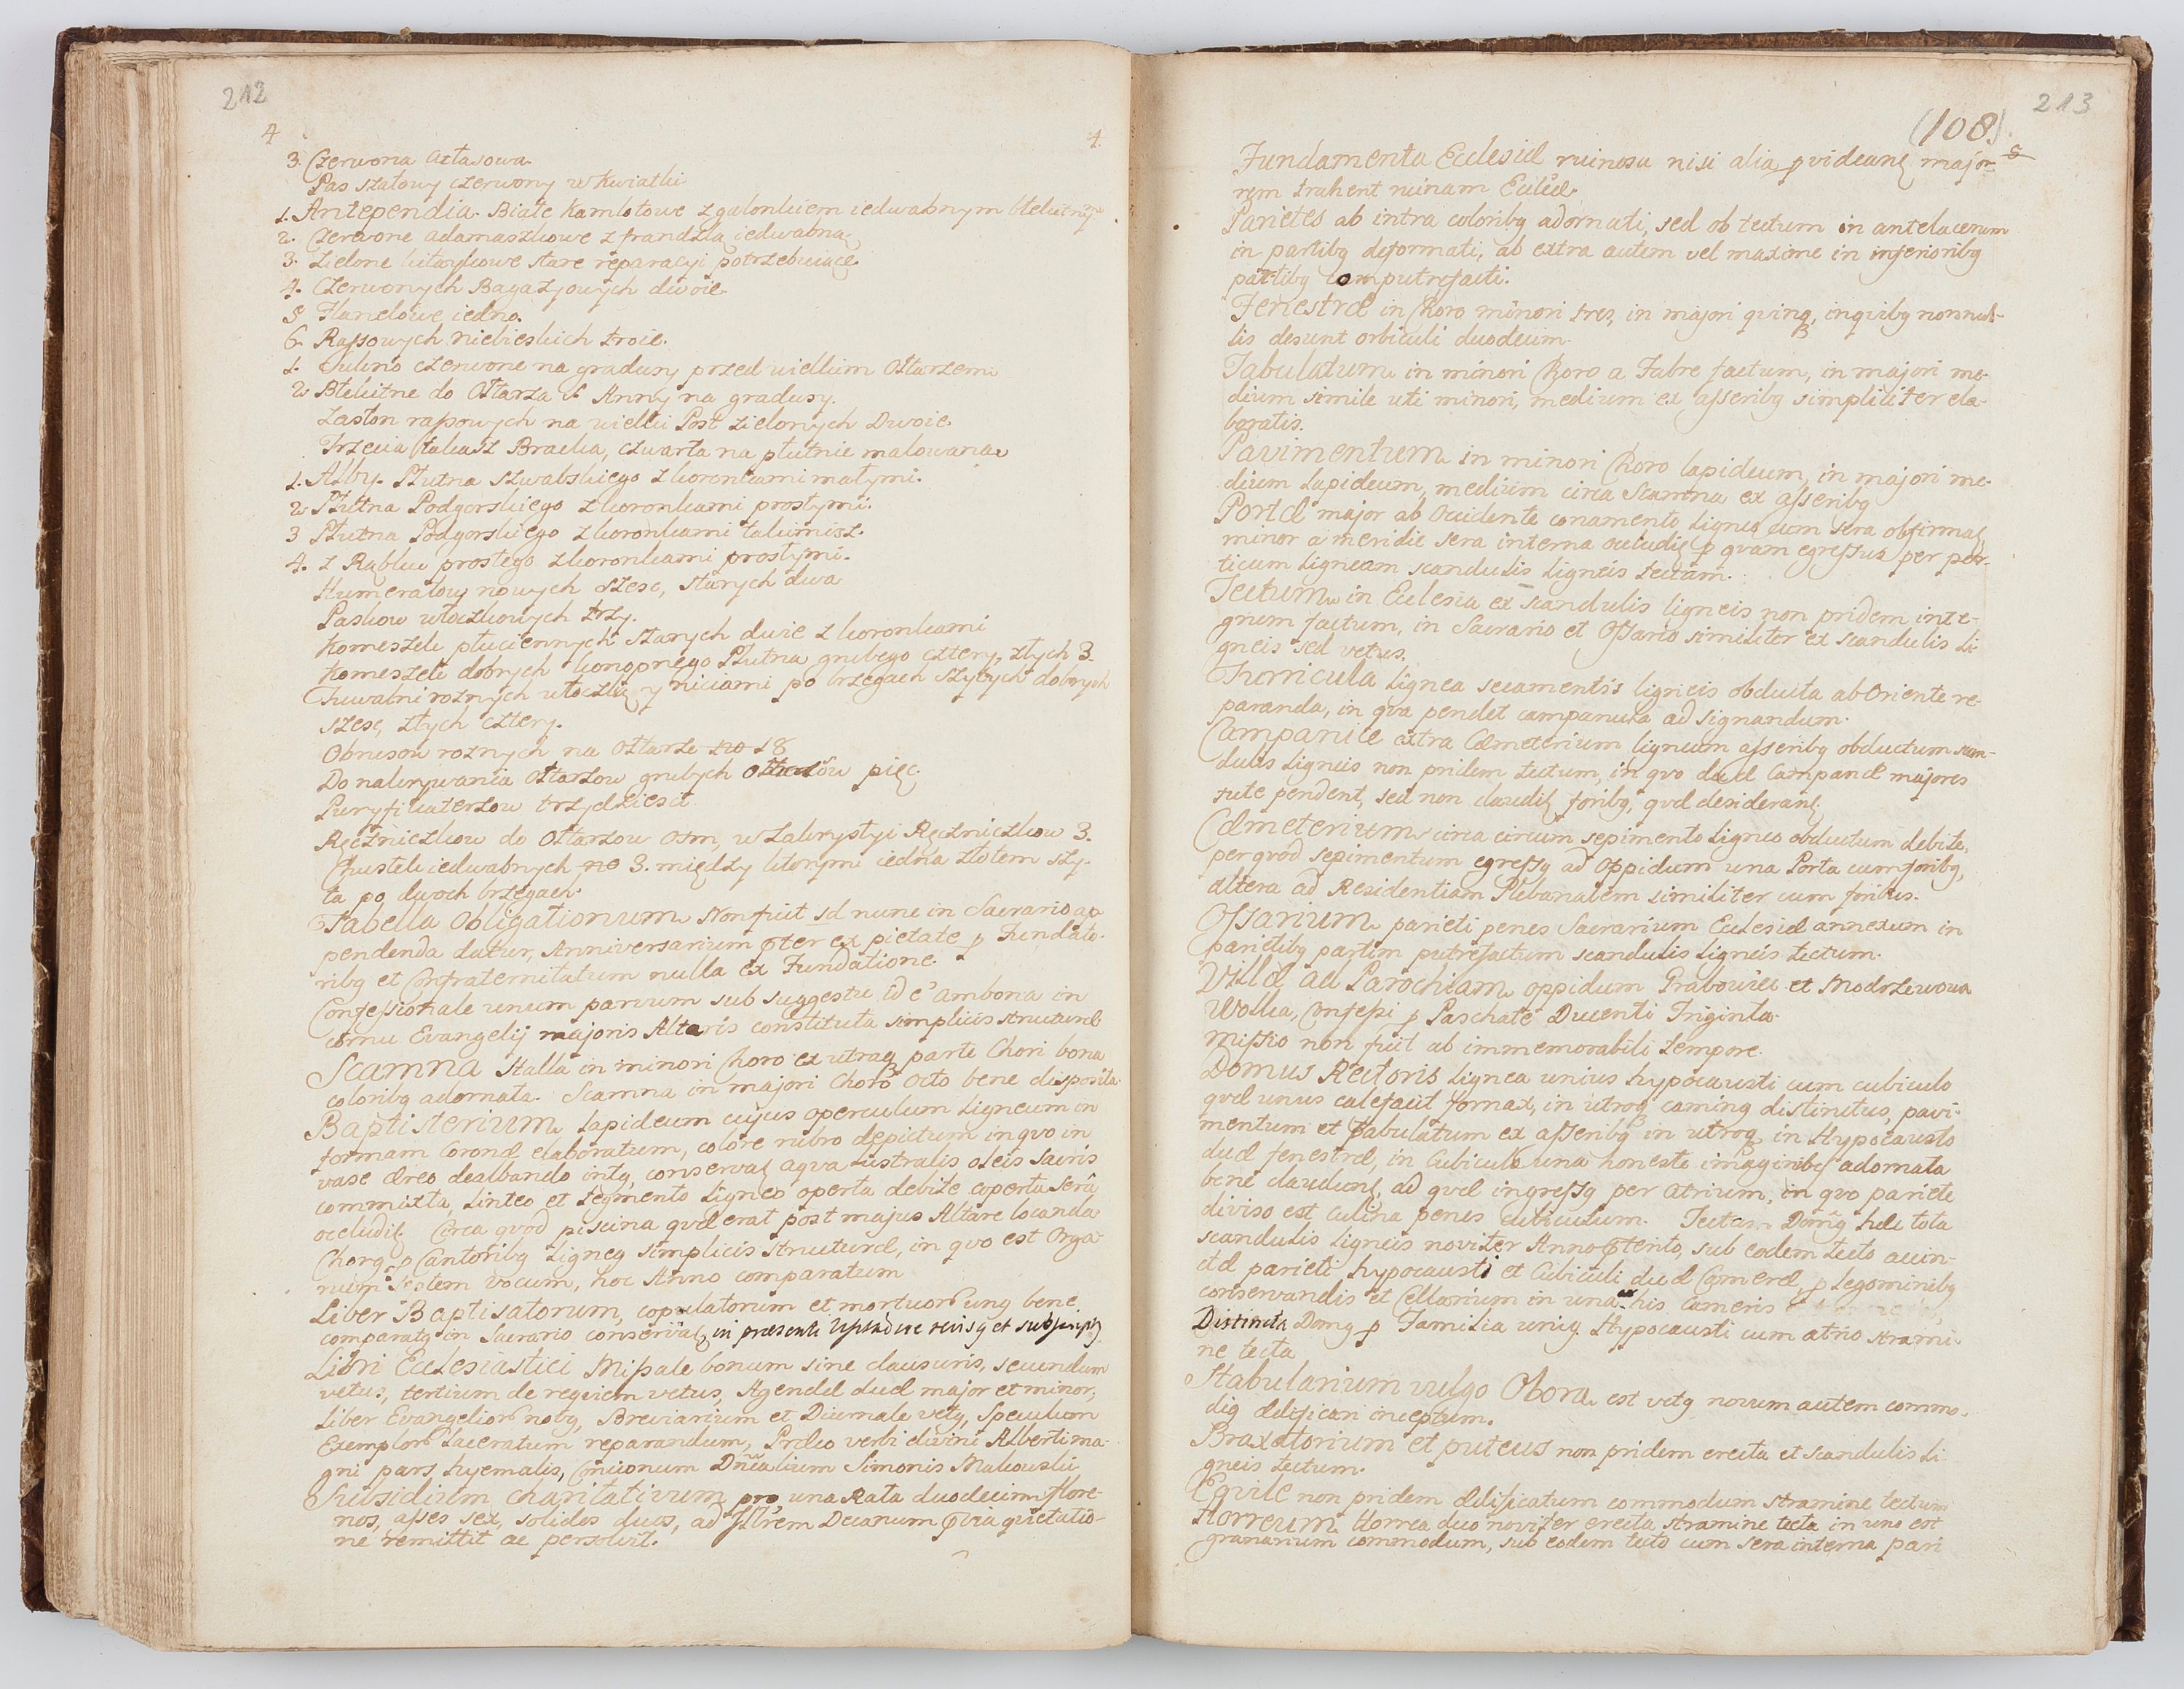 212
4 4.
3. Czerwona Atłasowa
Pas szatowy czerwony w kwiatki
1. Antependia. Białe kamlotowe z galonkiem iedwabnym błękitny
2. Czerwone adamaszkowe z frandzlą iedwabną
3. Zielone kitaykowe stare reparacyi potrzebuiące
4. Czerwonych Bagazyowych dwoie
5 Flanelowe iedno.
6. Rassowych niebieskich troie.
1. Sukno czerwone na gradusy przed wielkim Ołtarzem
2. Błekitne do Ołtarza S. Anny na gradusy.
Zasłon rasowych na wielki Post zielonych Dwoie.
Trzecia takasz Bracka, czwarta na płutnie malowana
1. Alby. Płutna szwabskiego z koronkami małymi.
2 Płutna Podgorskiego z koronkami prostymi.
3 Płutna Podgorskiego z koronkami takimisz.
4. z Rąbku prostego z koronkami prostymi.
Humerałow nowych szesc, starych dwa
Paskow włoczkowych trzy.
Komeszek płuciennych starych dwie z koronkami
Komeszek dobrych konopnego Płutna grubego cztery, złych 3.
Tuwalni roznych włoczką y niciami po brzegach szytych dobrych
szesc, złych cztery.
Obrusow roznych na Ołtarze no 18
Do nakrywania Ołtarzow grubych pięc
Puryfikaterzow trzydziesci
Ręczniczkow do Ołtarzow osm, w Zakrystyi Ręczniczkow 3.
Chustek iedwabnych no 3. między ktorymi iedna złotem szy-
ta po dwoch brzegach.
Tabella Obligationum Non fuit sed nunc in Sacrario ap
pendenda datur, Anniversarium pter ex pietate p Fundato-
ribq et Confraternitatum nulla ex Fundatione.
Confessionale unum parvum sub suggestu id e' ambona in
cornu Evangelij majoris Altaris constituta simplicis structuræ
Scamna Stalla in minori Choro ex utraq parte Chori bona
coloribq adornata. Scamna in majori Choro octo bene disposita.
Baptisterium Lapideum cujus operculum Ligneum in
formam Coronæ elaboratum, colore rubro depictum in qvo in
vase æreo dealbando intq, conservat aqva lustralis oleis sacris
commixta, Linteo et segmento Ligneo operta debite coperta sera
occludit. Circa qvod piscina qvæ erat post majus Altare locanda
Chorq p Cantoribq Ligneq simplicis structuræ, in qvo est Orga-
num Septem vocum, hoc Anno comparatum
Liber Baptisatorum, copulatorum et mortuor unq bene
comparatq in Sacrario conservat,
Libri Ecclesiastici Missale bonum sine clausuris, secundum
vetus, tertium de reqviem vetus, Agendæ duæ major et minor,
Liber Evangelior nobq, Breviarium et Diurnale vetq, Speculum
Exemplor laceratum reparandum, Præco verbi divini Alberti ma-
gni pars hyemalis, Concionum Dnicalium Simonis Makowski
Subsidium charitativum pro una Rata duodecim flore-
nos, asses sex, solidos duos, ad Illrem Decanum qvietatio-
ne remittit ac persolvit.
213
(108).
5
Fundamenta Ecclesiæ ruinosa nisi alia pvideant majo-
rem trahent ruinam Eccliæ.
Parietes ab intra coloribq adornati, sed ob tectum in antelacerum
in partibq deformati, ab extra autem vel maxime in inferioribq
partibq computrefacti.
Fenestræ in Choro minori tres, in majori qvinq, in qvibq nonnul-
lis desunt orbiculi duodecim.
Tabulatum in minori Choro a Fabre factum, in majori me-
dium simile uti minori, medium ex asseribq simpliciter ela-
boratis.
Pavimentum in minori Choro lapideum, in majori me-
dium Lapideum, medium circa Scamna ex asseribq
Portæ major ab Occidente conamento Ligneo cum sera obfirmat
minor a meridie sera interna occludit p qvam egressus per por-
ticum Ligneam scandulis Ligneis tectam.
Tectum in Ecclesia ex scandulis ligneis non pridem inte-
grum factum, in Sacrario et Ossario similiter ex scandulis li
gneis sed vetus.
Turricula Lignea secamentis ligneis obducta ab Oriente re-
paranda, in qva pendet campanula ad signandum.
Campanile extra Cæmeterium ligneum asseribq obductum scan-
dulis Ligneis non pridem tectum, in qvo duæ Campanæ majores
tute pendent, sed non claudit foribq, qvæ desiderant
Cæmeterium circa circum sepimento Ligneo obductum debite,
per qvod sepimentum egressq ad Oppidum una Porta cum foribq,
altera ad Residentiam Plebanalem similiter cum foribus.
Ossarium parieti penes Sacrarium Ecclesiæ annexum in
parietibq partim putrefactum scandulis Ligneis tectum.
Villæ ad Parochiam oppidum Grabowiec et Modrzewowa
Wolka, Confessi p Paschate Ducenti Triginta.
Missio non fuit ab immemorabili tempore.
Domus Rectoris Lignea unius hypocausti cum cubiculo
qvæ unus calefacit fornax, in utroq caminq distinctus, pavi-
mentum et tabulatum ex asseribq in utroq in Hypocausto
duæ fenestræ, in Cubiculo una honeste imaginibq adornata
bene claudunt, ad qvæ ingressq per Atrium, in qvo pariete
diviso est culina penes cubiculum. Tectum Domq hæc tota
scandulis Ligneis noviter Anno pterito, sub eodem tecto accin-
ctæ parieti hypocausti et Cubiculi duæ Cameræ, p Legominibq
conservandis et Cellarium in una his Cameris
Distincta Domq p Familia uniq Hypocausti cum atrio strami-
ne tecta
Stabularium vulgo Obora est vetq novum autem commo-
diq ædificari inceptum.
Braxatorium et puteus non pridem erecta et scandulis li
gneis tectum.
Eqvile non pridem ædificatum commodum stramine tectum
Horreum Horrea duo noviter erecta stramine tecta in uno est
granarium commodum, sub eodem tecto cum sera interna pari